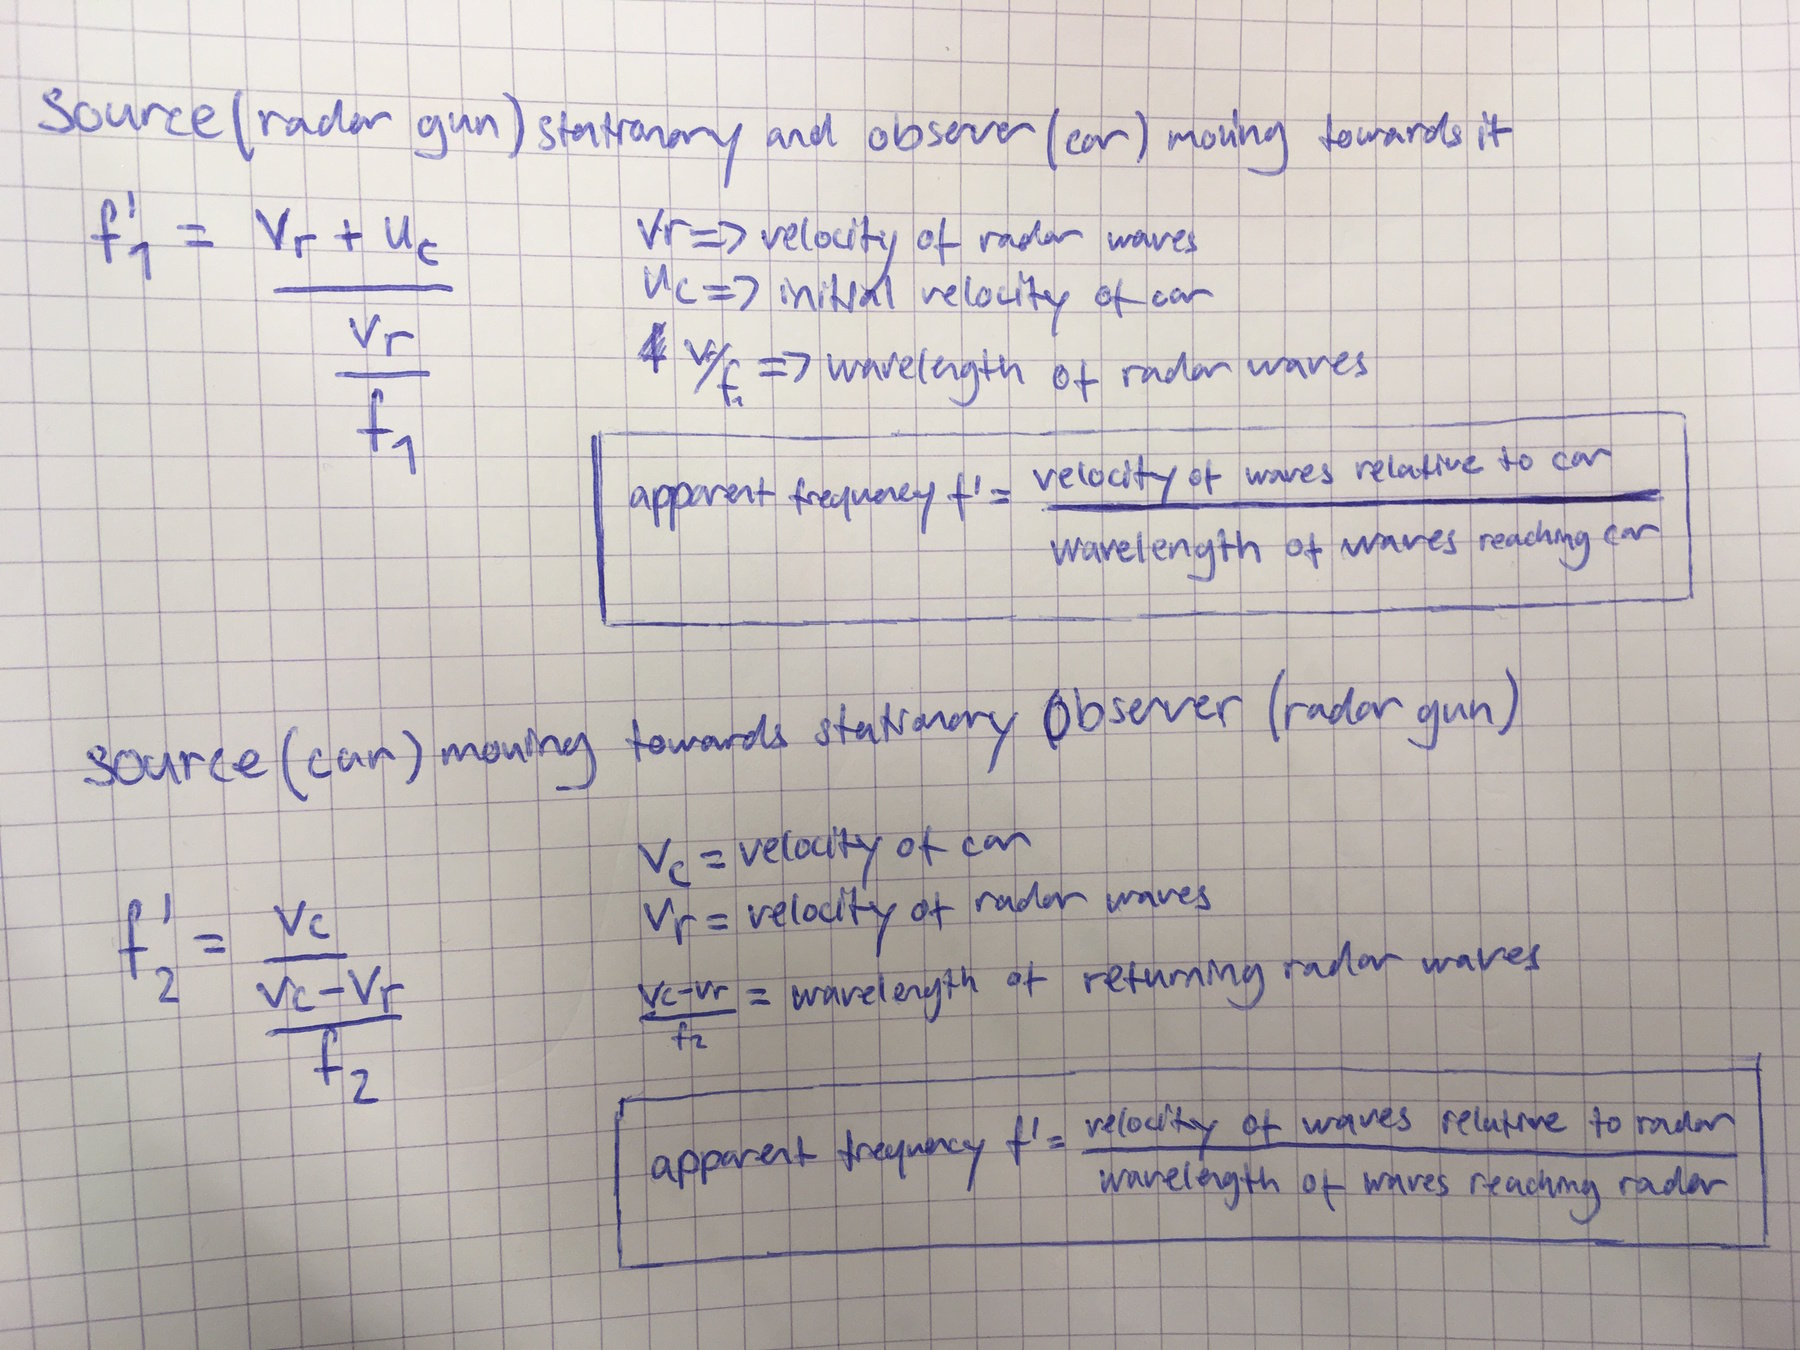 source (radar gun) stationary and observer (car) moving towards it
f'₁ = (Vr + uc) / (Vr / f₁)
Vr => velocity of radar waves
uc => initial velocity of car
Vr/f₁ => wavelength of radar waves
apparent frequency f' = velocity of waves relative to car / wavelength of waves reaching car
source (car) moving towards stationary Observer (radar gun)
Vc = velocity of car
Vr = velocity of radar waves
f'₂ = Vc / ((Vc - Vr) / f₂)
(Vc - Vr) / f₂ = wavelength of returning radar waves
apparent frequency f' = velocity of waves relative to radar / wavelength of waves reaching radar